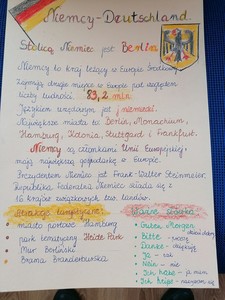 Niemcy - Deutschland.
Stolicą Niemiec jest Berlin
Niemcy to kraj leżący w Europie Środkowej.
Zajmują drugie miejsce w Europie pod względem
liczby ludności 83,2 mln.
Językiem urzędowym jest j. niemiecki.
Największe miasta to: Berlin, Monachium,
Hamburg, Kolonia, Stuttgard i Frankfurt.
Niemcy są członkami Unii Europejskiej
mają największą gospodarkę w Europie.
Prezydentem Niemiec jest Frank-Walter Steinmeier.
Republika Federalna Niemiec składa się z
16 krajów związkowych tzw. landów.
Atrakcje turystyczne:
miasto portowe Hamburg
park tematyczny Heide Park
Mur Berliński
Brama Brandenburska
Ważne
Guten Morgen - dzień dobry
Bitte - proszę
Danke - dziękuję
Ja - tak
Nein - nie
Ich habe - ja mam
Ich heiße - nazywam się